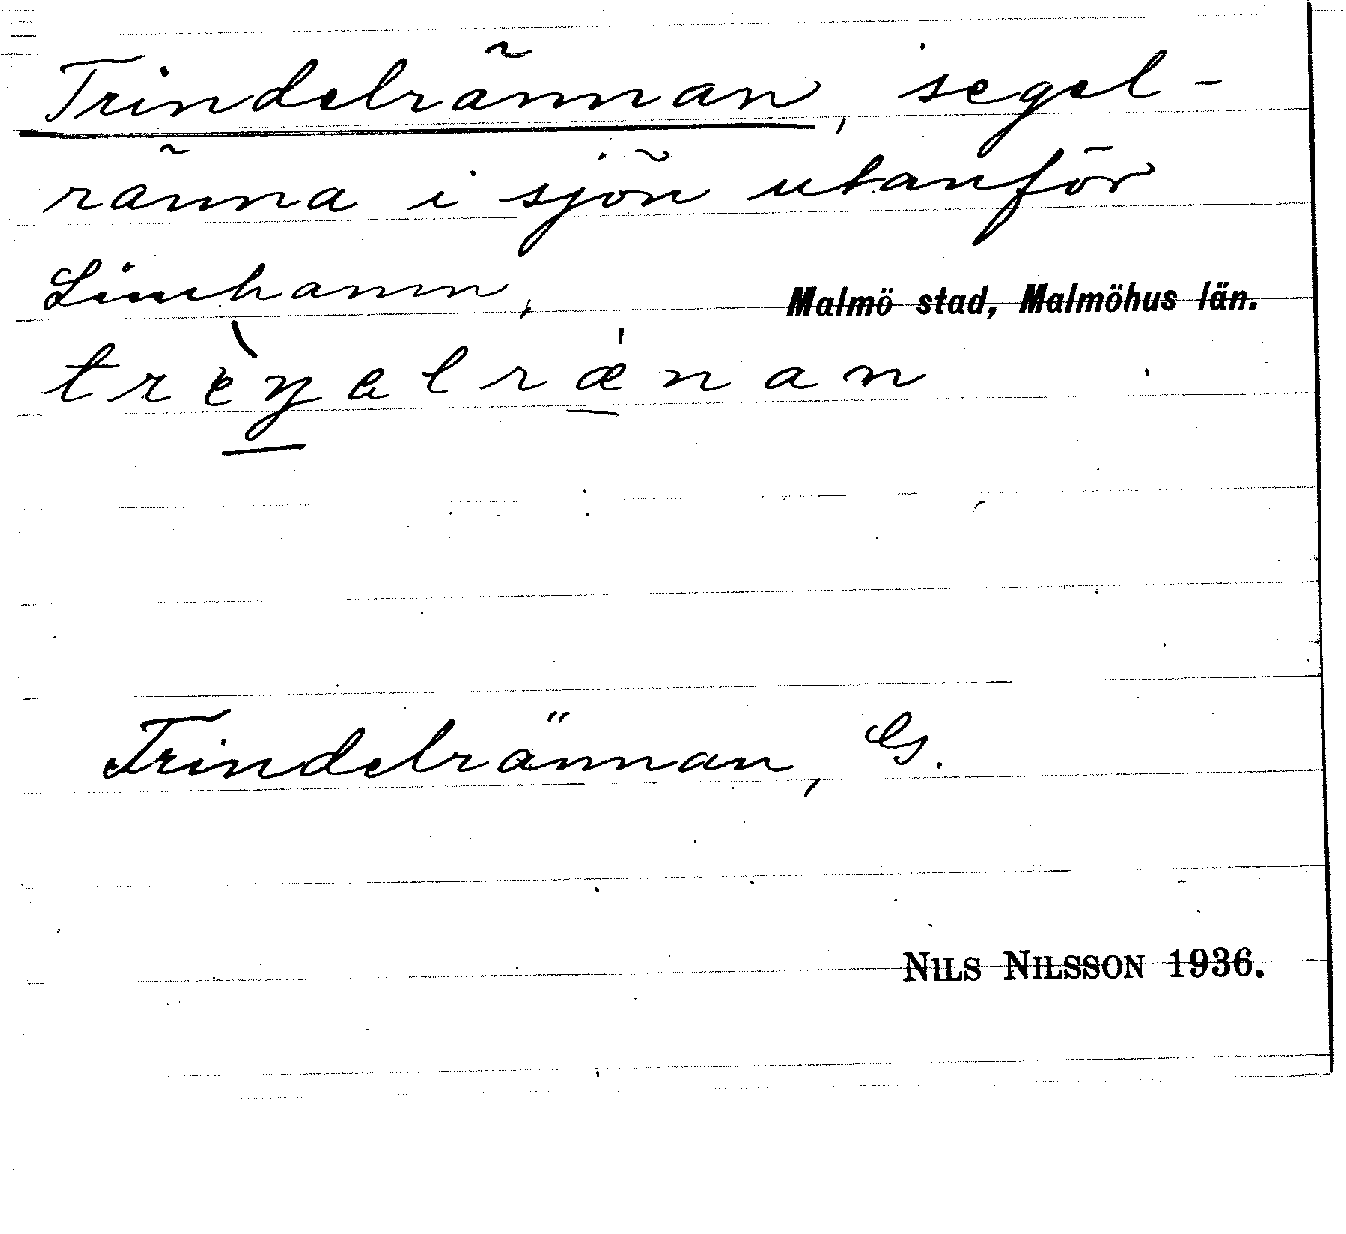 Trindelrännan, segel-
ränna i sjön utanför
Limhamn,
Malmö stad, Malmöhus län.
trèŋəlrænan
Trindelrännan, G.
NILS NILSSON 1936.